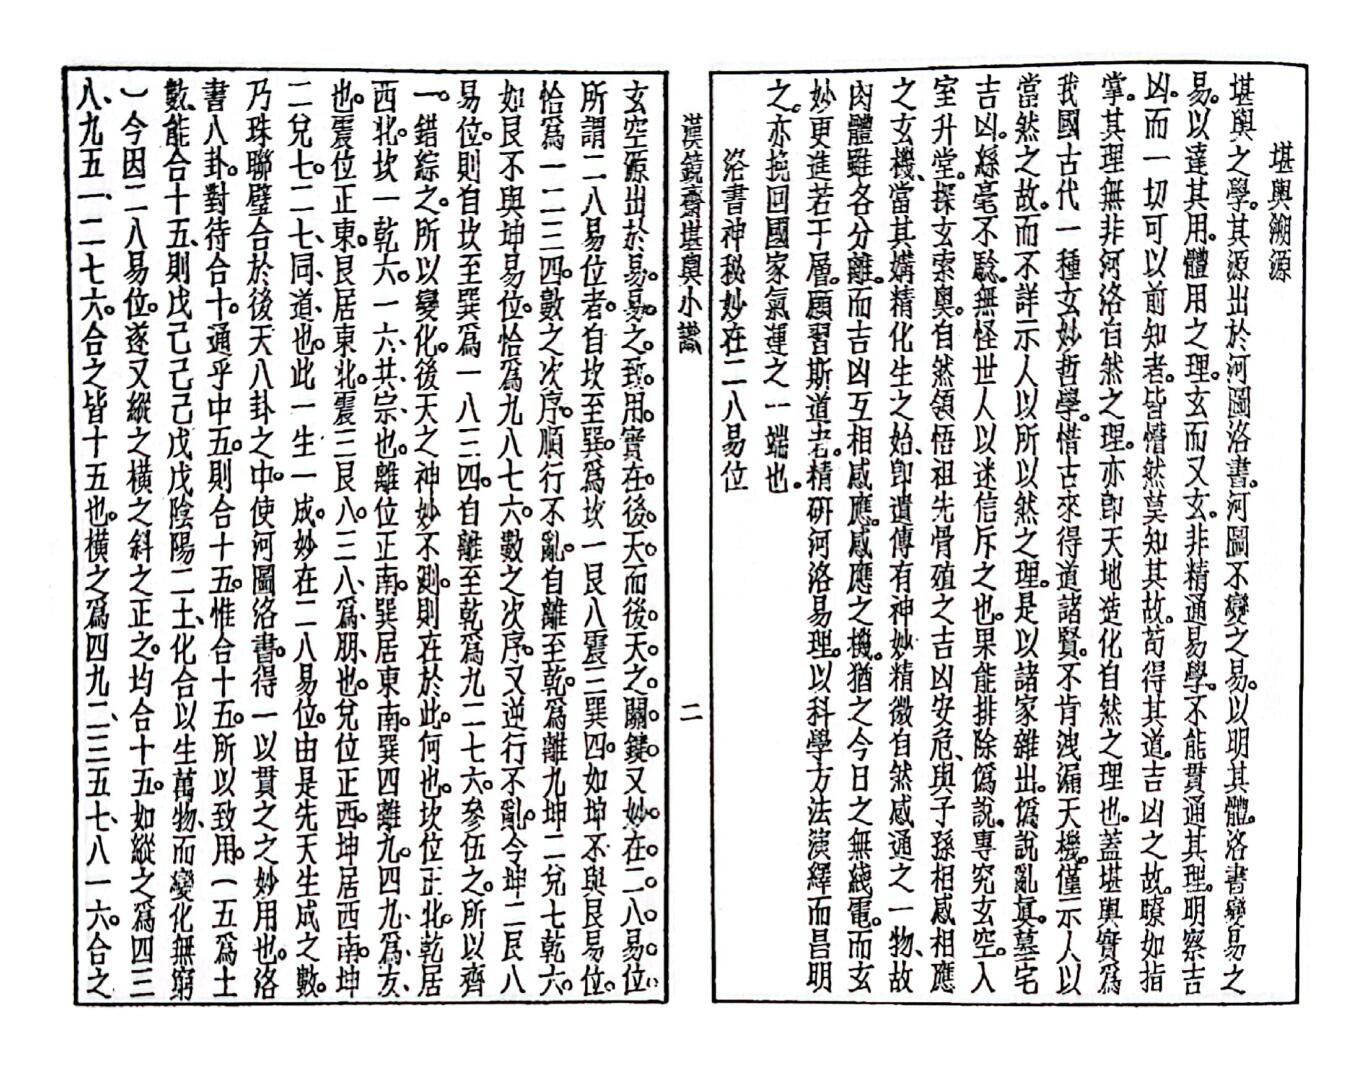 堪輿溯源
堪輿之學。其源出於河圖洛書。河圖不變之易。以明其體。洛書變易之
易。以達其用。體用之理。玄而又玄。非精通易學。不能貫通其理。明察吉
凶。而一切可以前知者。皆懵然莫知其故。苟得其道。吉凶之故。瞭如指
掌。其理無非河洛自然之理。亦卽天地造化自然之理也。蓋堪輿實爲
我國古代一種玄妙哲學。惜古來得道諸賢。不肯洩漏天機。僅示人以
當然之故。而不詳示人以所以然之理。是以諸家雜出。僞說亂眞。墓宅
吉凶。絲毫不驗。無怪世人以迷信斥之也。果能排除僞說。專究玄空。入
室升堂。探玄索奧。自然領悟祖先骨殖之吉凶安危、與子孫相感相應
之玄機、當其媾精化生之始、卽遺傳有神妙精微自然感通之一物、故
肉體雖各分離。而吉凶互相感應。感應之機。猶之今日之無綫電。而玄
妙更進若干層。願習斯道者。精研河洛易理。以科學方法演繹而昌明
之。亦挽回國家氣運之一端也。
洛書神秘妙在二八易位
漢鏡齋堪輿小識
二
玄空源出於易。易之致用。實在後天而後天之關鍵又妙在二八易位
所謂二八易位者。自坎至巽。爲坎一艮八震三巽四。如坤不與艮易位。
恰爲一二三四。數之次序。順行不亂。自離至乾。爲離九坤二兌七乾六。
如艮不與坤易位。恰爲九八七六。數之次序。又逆行不亂。今坤二艮八
易位。則自坎至巽爲一八三四。自離至乾爲九二七六。參伍之。所以齊
一。錯綜之。所以變化。後天之神妙不測。則在於此。何也。坎位正北。乾居
西北。坎一乾六。一六、共宗也。離位正南。巽居東南。巽四離九。四九、爲友、
也。震位正東。艮居東北。震三艮八。三八、爲朋、也。兌位正西。坤居西南。坤
二兌七。二七、同道、也。此一生一成。妙在二八易位。由是先天生成之數。
乃珠聯璧合於後天八卦之中。使河圖洛書。得一以貫之之妙用也。洛
書八卦。對待合十。通乎中五。則合十五。惟合十五。所以致用。（一五爲土
數、能合十五、則戊己己己戊戊陰陽二土、化合以生萬物、而變化無窮
）今因二八易位。遂又縱之橫之斜之正之。均合十五。如縱之爲四三
八、九五一、二七六。合之皆十五也。橫之爲四九二、三五七、八一六。合之